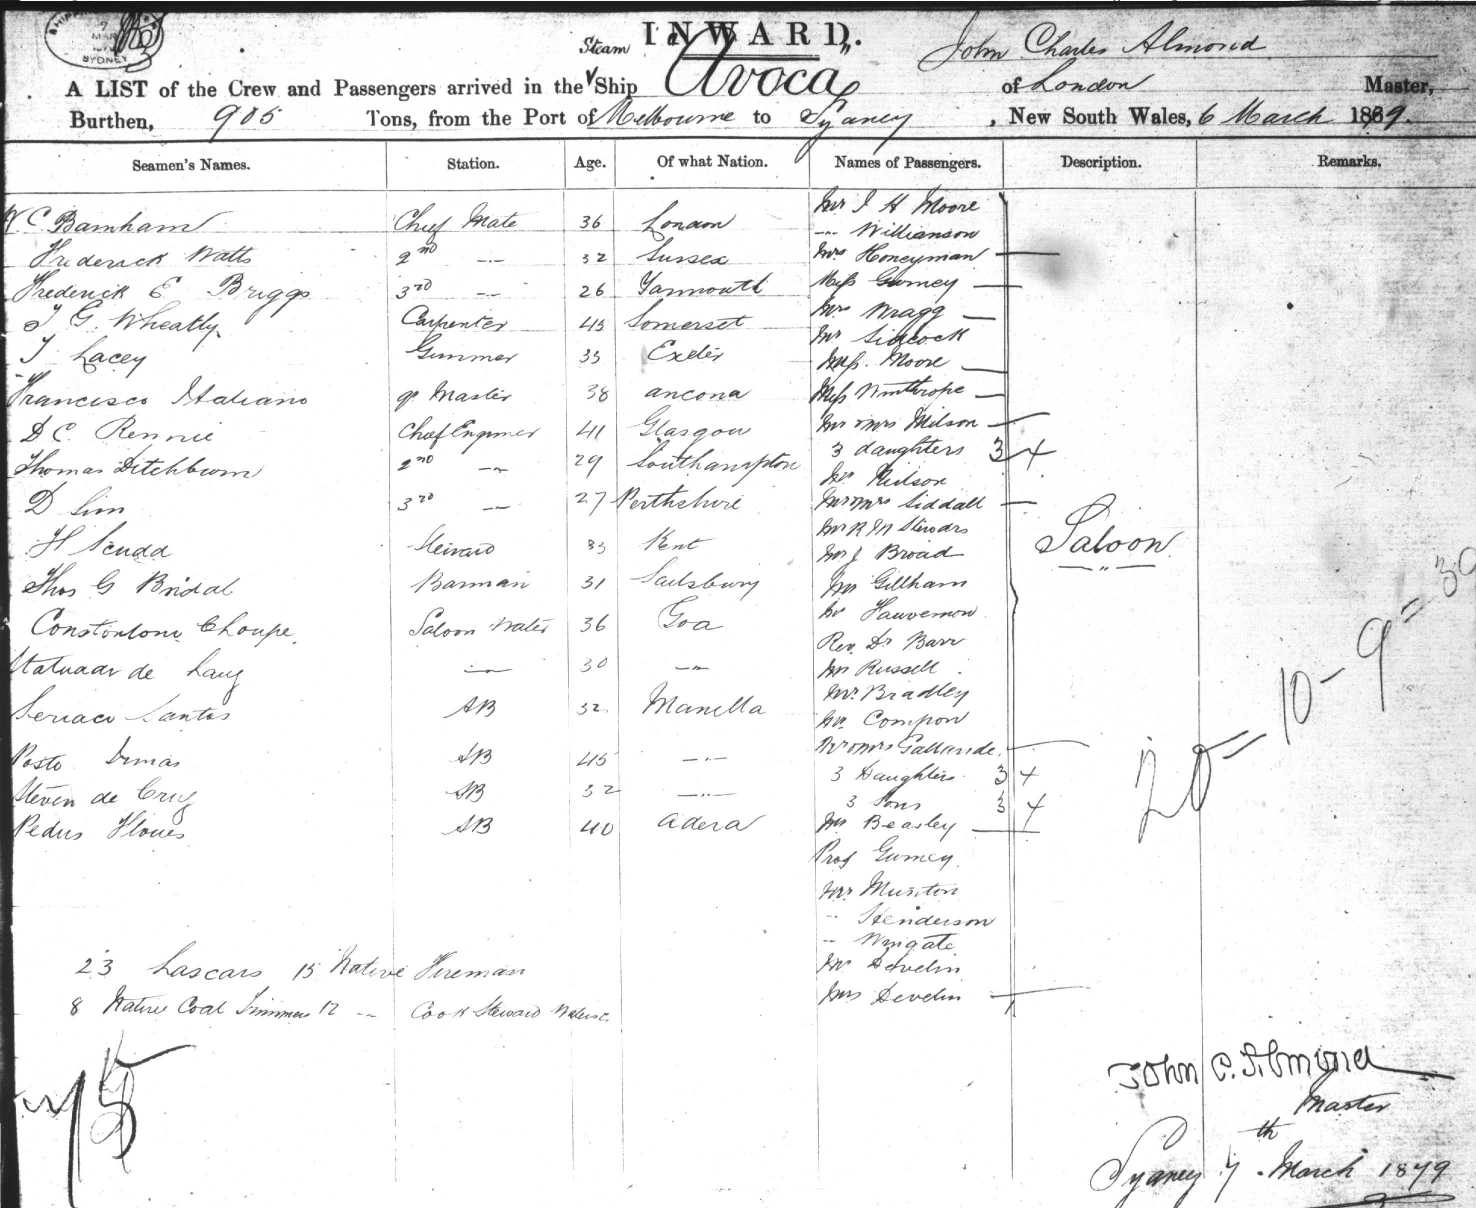 SYDNEY
INWARD.
Steam
John Charles Almond
A LIST of the Crew and Passengers arrived in the Ship Avoca of London Master,
Burthen, 905 Tons, from the Port of Melbourne to Sydney, New South Wales, 6 March 1879.
Seamen's Names. Station. Age. Of what Nation. Names of Passengers. Description. Remarks.
W C Barnham Chief Mate 36 London
Frederick Watts 2nd -"- 32 Sussex
Frederick E Briggs 3rd -"- 26 Yarmouth
T G Wheatly Carpenter 45 Somerset
T Lacey Gunner 35 Exeter
Francisco Italiano qr Master 38 ancona
D C Rennie Chief Engineer 41 Glasgow
Thomas Ditchburn 2nd -"- 29 Southampton
D Sim 3rd -"- 27 Perthshire
H Scudd Steward 33 Kent
Thos G Bridal Barman 31 Sailsbury
Choupe Saloon Water 36 Goa
de -"- 30 -"-
Santos AB 32 Manella
AB 45 -"-
Steven de Cruz AB 32 -"-
AB 40
23 Lascars 15 Native Fireman
8 Native Coal Trimmers 12 -- Cook Steward
75
Mr J H Moore
-"- Williamson
Mrs Honeyman
Miss Gurney
Mr Wragg
Mr
Miss Moore
Miss Winthrope
Mr & Mrs Milson
3 daughters 3 4
Mr Neilson
Mr & Mrs Siddall
Mr R M
Mr J Broad
Mr Gillham
Mr
Rev Dr Barr
Mr Russell
Mr. Bradley
Mr.
Mr & Mrs
3 Daughters 3 4
3 Sons 3 4
Mr Beasley
Prof Gurney
Mr. Munton
-- Henderson
-- Wingate
Mr Develin
Mrs Develin
Saloon
-"-
20 = 10 - 9 = 39
John C. Almond
Master
Sydney 7th March 1879